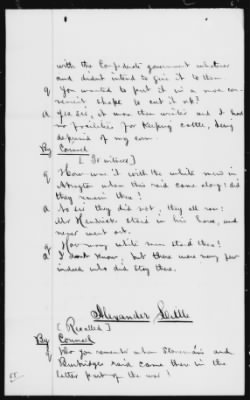 with the Confederate government whatever
and didnt intend to give it to them.
Q You wanted to put it in a more con-
venient shape to eat it up?
A Yes Sir, it more than winter and I had
no facilities for keeping cattle, being
deprived of my corn.
By Counsel
[To witness]
Q How was it with the white men in
Abington when this raid came along: did
they remain there?
A No sir they did not, they all ran:
Mr Kendrick staid in his house, and
never went out.
Q How many white men staid there?
A I dont know, but there were very few
indeed who did stay there.
Alexander
[Recalled]
By Counsel
Q Do you remember when Stoneman's and
Burbridges raid came there in the
latter part of the war?